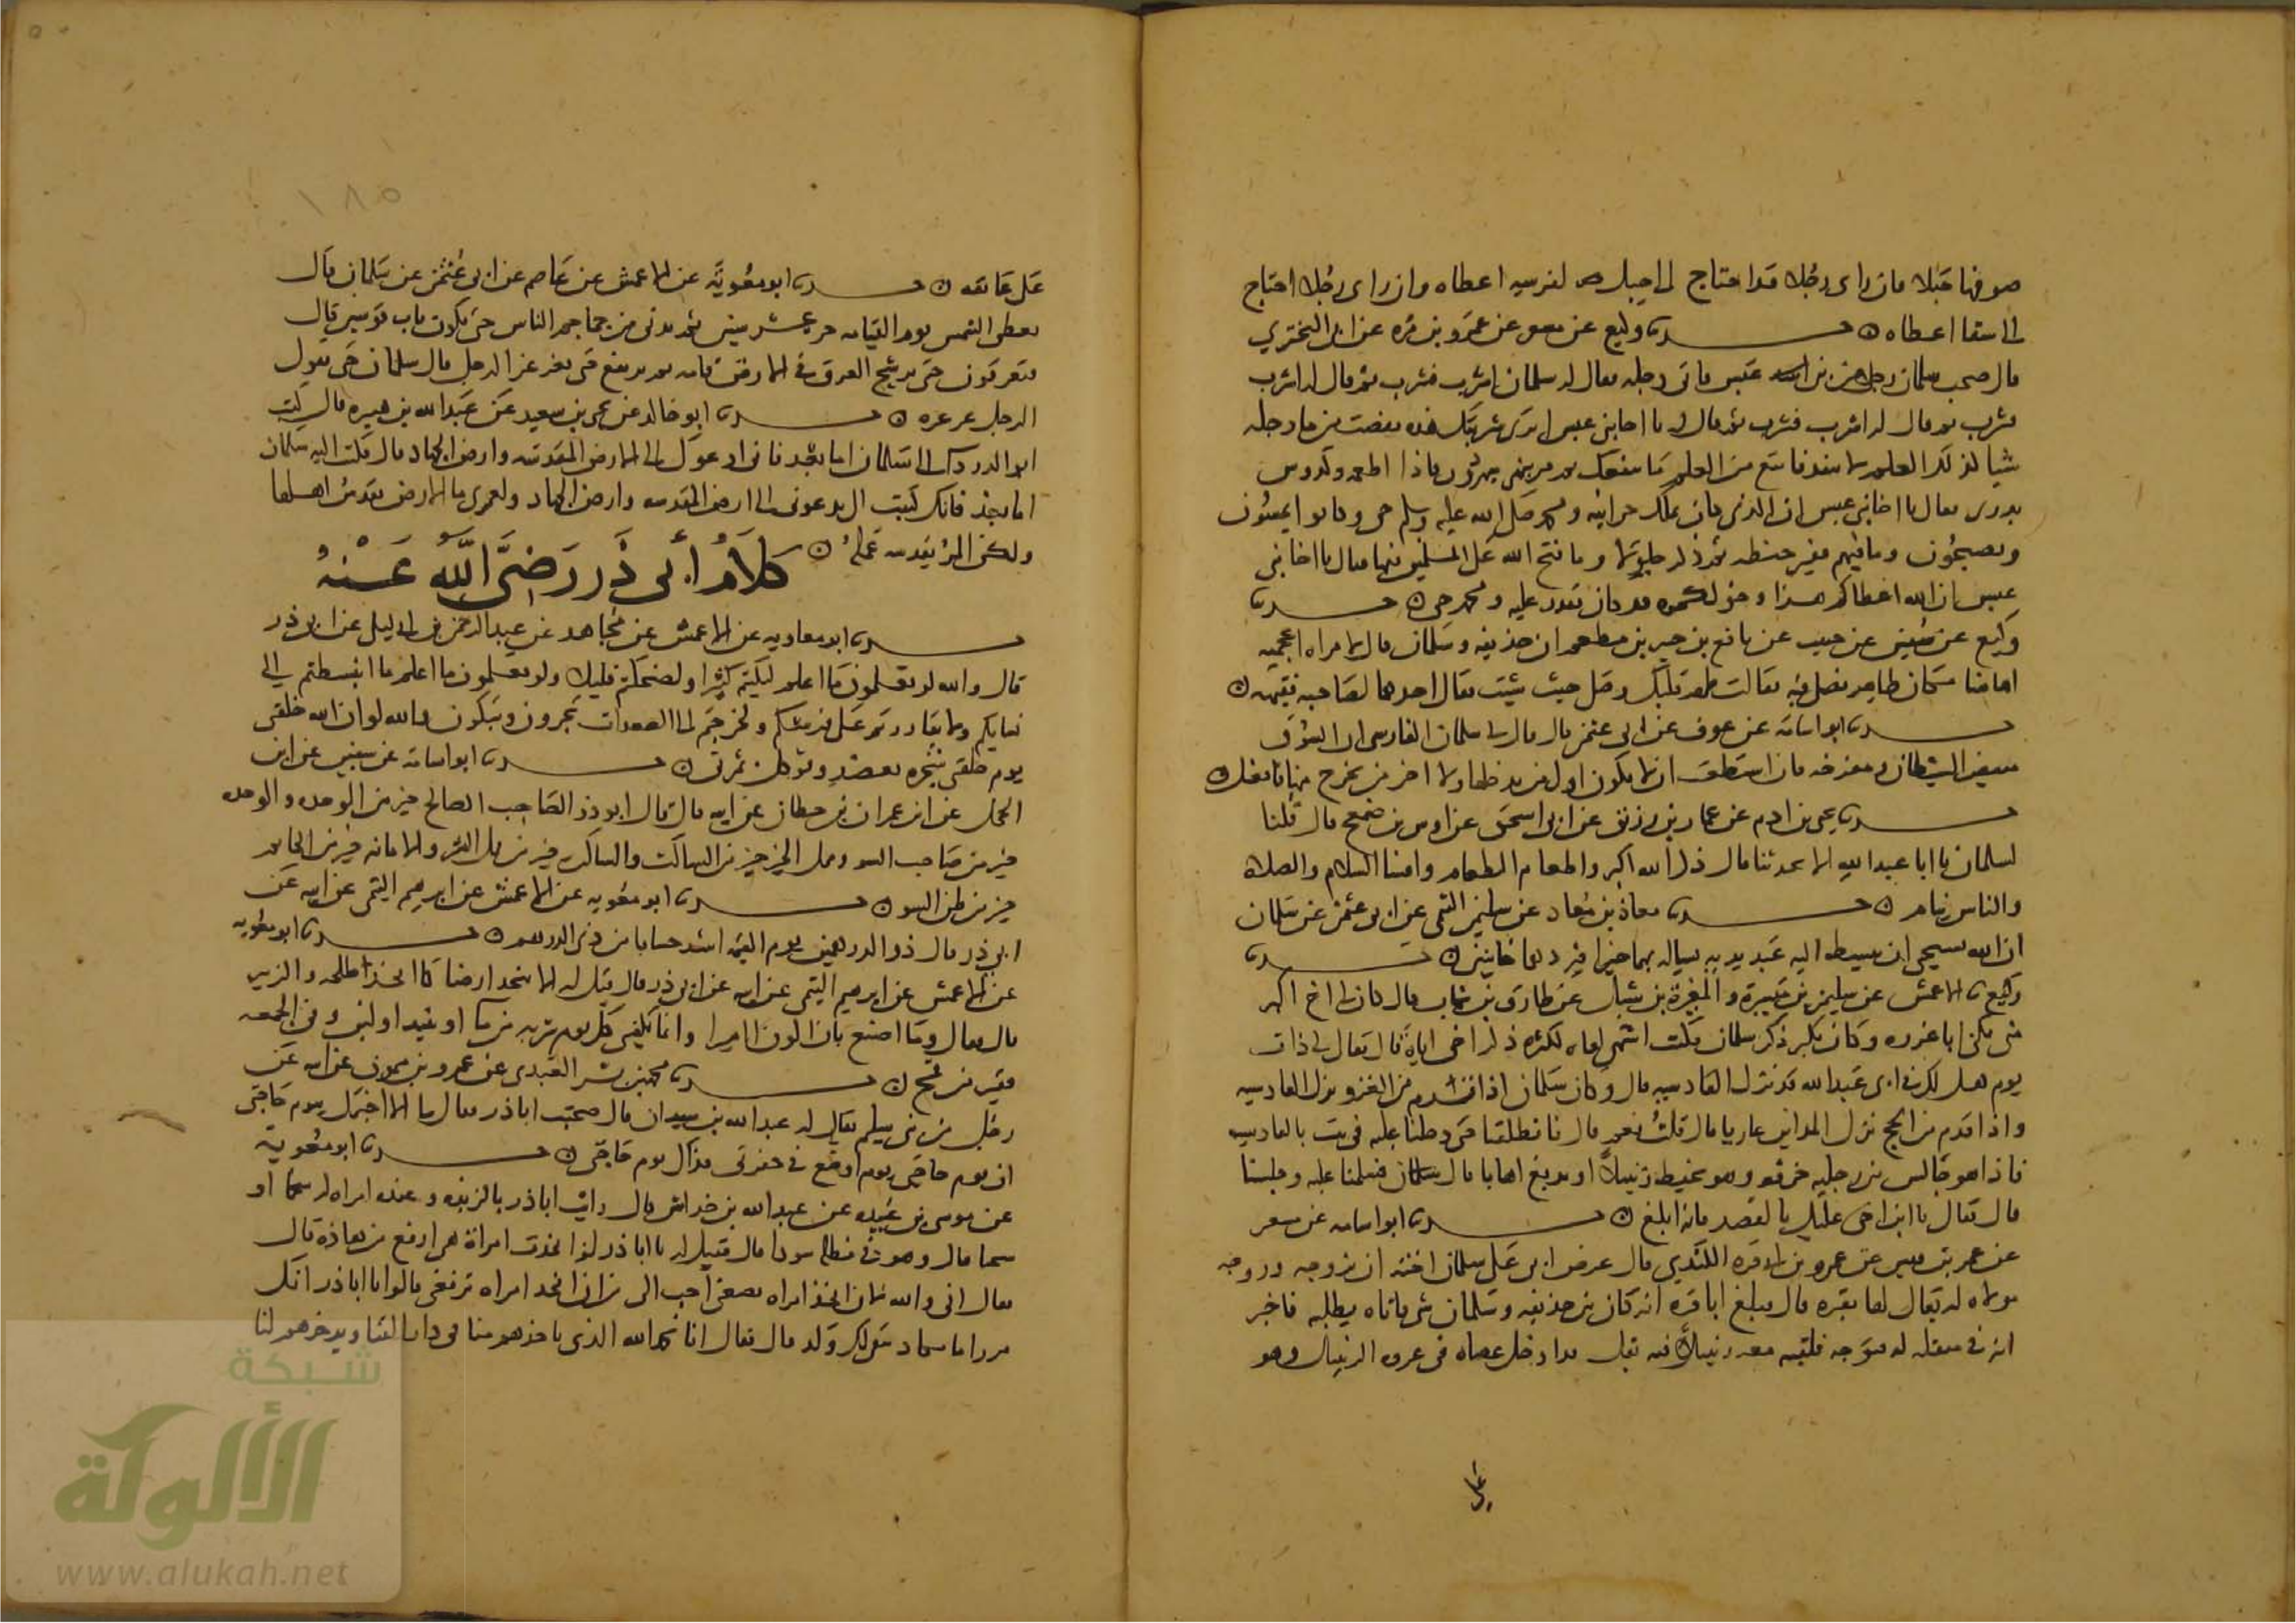 صوفها حبلا فان راى رجلا قد احتاج الى حبل لفرسه اعطاه وان راى رجلا احتاج
الى سقا اعطاه حدثنا وكيع عن مسعر عن عمرو بن مره عن ابى البختري
قال صحب سلمان رجل من بنى عبس فاتى دجله فقال له سلمان اشرب فشرب ثم قال له اشرب
فشرب ثم قال له اشرب فشرب ثم قال له يا اخا بنى عبس اترى شربتك هذه نقصت من ما دجله
شيا كذلك العلم لا ينفد فاتبع من العلم ما ينفعك ثم مر بنهر فاذا اطعمه وكدوس
تدرى فقال يا اخا بنى عبس ان الذى كان يملك خزاينه ومحمد صلى الله عليه وسلم حى وكانوا يمسون
ويصبحون وما فيهم قفيز حنطه ثم ذكر جلولا وما فتح الله على المسلمين فيها فقال يا اخا بنى
عبس ان الله اعطاكم هذا وخولكموه قد كان يقدر عليه ومحمد حى حدثنا
وكيع عن سفين عن حبيب عن نافع بن جبير بن مطعم ان حذيفه وسلمان قالا لامراه اعجميه
اهاهنا مكان طاهر نصلى فيه فقالت طهر قلبك وصل حيث شيت فقال احدهما لصاحبه فقهت
حدثنا ابو اسامه عن عوف عن ابى عثمن قال قال لى سلمان الفارسى ان السوق
مبيض الشيطان ومفرخه فان استطعت ان لا يكون اول من يدخلها ولا اخر من يخرج منها فافعل
حدثنا يحيى بن ادم عن عمار بن رزيق عن ابى اسحق عن اوس بن ضمعج قال قلنا
لسلمان يا ابا عبد الله الا تحدثنا قال ذكر الله اكبر واطعام الطعام وافشا السلام والصلاه
والناس نيام حدثنا معاذ بن معاذ عن سليمن التيمى عن ابى عثمن عن سلمان
ان الله يستحيى ان يبسط اليه عبد يديه يساله بهما خيرا فيردهما خايبتين حدثنا
وكيع نا الاعمش عن سليمن بن ميسرة والمغيرة بن شبل عن طارق بن شهاب قال كان لى اخ اكبر
منى يكنى ابا عزره وكان يكثر ذكر سلمان فكنت اشتهى لقاه لكثره ذكر اخى اياه قال فقال لى ذات
يوم هل لك فى ابى عبد الله قد نزل القادسيه قال وكان سلمان اذا قدم من الغزو نزل القادسيه
واذا قدم من الحج نزل المداين غازيا قال قلت نعم قال فانطلقنا حتى دخلنا عليه فى بيت بالقادسيه
فاذا هو جالس بين رجليه خرقه وهو يخيط زنبيلا او يدبغ اهابا قال سلمان فسلمنا عليه وجلسنا
قال فقال يا ابن اخى عليك بالقصد فانه ابلغ حدثنا ابو اسامه عن مسعر
عن عمر بن قيس عن عمرو بن ابى قره الكندى قال عرض ابى على سلمان اخته ان يزوجه وزوجه
مولاه له يقال لها بقيره قال فبلغ ابا قره انه كان بين حذيفه وسلمان شى فاتاه يطلبه فاخبر
انه فى مبقله له فتوجه فلقيه معه زنبيل فيه بقل قد ادخل عصاه فى عروه الزنبيل وهو
على
١٨٥
على عاتقه حدثنا ابو معوية عن الاعمش عن عاصم عن ابى عثمن عن سلمان قال
تعطى الشمس يوم القيامه حر عشر سنين ثم تدنى من جماجم الناس حتى تكون قاب قوسين قال
فيعرقون حتى يرشح العرق فى الارض قامه ثم يرتفع حتى يغرغر الرجل قال سلمان حتى يقول
الرجل غر غره حدثنا ابو خالد عن يحيى بن سعيد عن عبد الله بن هبيره قال كتب
ابو الدردا الى سلمان اما بعد فانى ادعوك الى الارض المقدسه وارض الجهاد قال فكتب اليه سلمان
اما بعد فانك كتبت الى تدعونى الى ارض المقدسه وارض الجهاد ولعمرى ما الارض تقدس اهلها
ولكن المرء يقدسه عمله
كلام أبى ذر رضى الله عنه
حدثنا ابو معاويه عن الاعمش عن مجاهد عن عبد الرحمن بن ابى ليلى عن ابى ذر
قال والله لو تعلمون ما اعلم لبكيتم كثيرا ولضحكتم قليلا ولو تعلمون ما اعلم ما انبسطتم الى
نسايكم ولا تقاررتم على فرشكم ولخرجتم الى الصعدات تجرون وتبكون والله لو ان الله خلقنى
يوم خلقنى شجره تعضد وتوكل ثمرتى حدثنا ابو اسامه عن سفين عن ابن
المحل عن ابن عمران بن حطان عن ابيه قال قال ابو ذر الصاحب الصالح خير من الوحده والوحده
خير من صاحب السو ومملى الخير خير من الساكت والساكت خير من مملى الشر والامانه خير من الخاتم
خير من ظن السو حدثنا ابو معويه عن الاعمش عن ابرهيم التيمى عن ابيه عن
ابى ذر قال ذو الدرهمين يوم القيمه اشد حسابا من ذى الدرهم حدثنا ابو معويه
عن الاعمش عن ابرهيم التيمى عن ابيه عن ابى ذر قال قيل له الا تتخذ ارضا كما اتخذ طلحه والزبير
قال فقال وما اصنع بان اكون اميرا وانما يكفينى كل يوم شربه من ما او نبيذ او لبن وفى الجمعه
قفيز من قمح حدثنا محمد بن بشر العبدى عن عمرو بن ميمون عن ابيه عن
رجل من بنى سليم يقال له عبد الله بن سيدان قال صحبت ابا ذر فقال لنا الا اخبركم بيوم حاجتى
ان يوم حاجتى يوم اوضع فى حفرتى فذاك يوم حاجتى حدثنا ابو معوية
عن موسى بن عبيده عن عبد الله بن خراش قال رايت ابا ذر بالربذه وعنده امراه له سحما او
سحما قال وهو فى مظله سودا قال فقيل له يا ابا ذر لو اتخذت امراة هى ارفع من هاذه قال
فقال انى والله لان اتخذ امراه تضعنى احب الى من ان اتخذ امراه ترفعنى قالوا يا ابا ذر انك
امرؤ ما يبقى لك ولد قال فقال انا نحمد الله الذى ياخذهم منا فى دار الفنا ويدخرهم لنا
شبكة
الألوكة
www.alukah.net